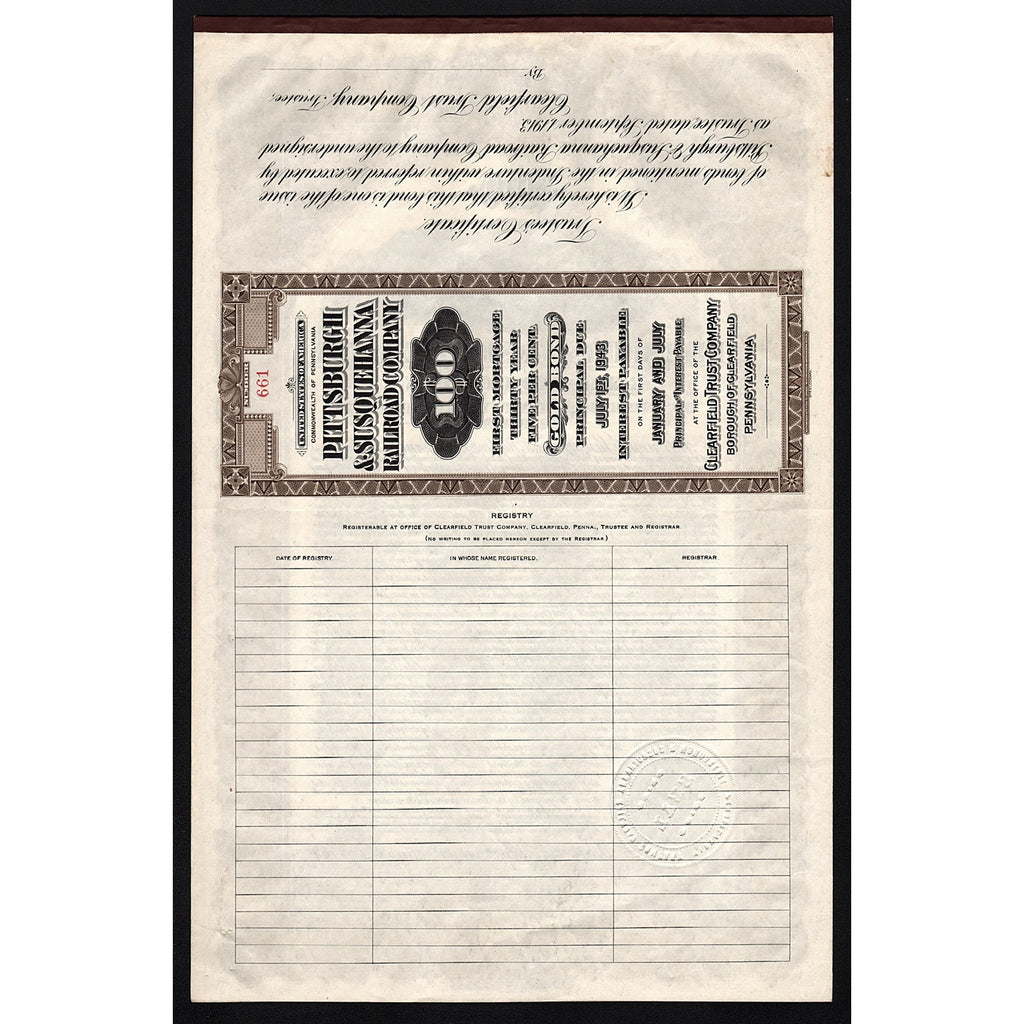 Trustee's Certificate:
It is hereby certified that this bond is one of the issue
of bonds, mentioned in the Indenture within referred to, executed by
Pittsburgh & Susquehanna Railroad Company to the undersigned
as Trustee, dated September 1, 1913.
Clearfield Trust Company, Trustee,
By
NUMBER
661
UNITED STATES OF AMERICA
COMMONWEALTH OF PENNSYLVANIA
PITTSBURGH
& SUSQUEHANNA
RAILROAD COMPANY
$100
FIRST MORTGAGE
THIRTY YEAR
FIVE PER CENT.
GOLD BOND
PRINCIPAL DUE
JULY 1ST, 1943
INTEREST PAYABLE
ON THE FIRST DAYS OF
JANUARY AND JULY
PRINCIPAL AND INTEREST PAYABLE
AT THE OFFICE OF THE
CLEARFIELD TRUST COMPANY
BOROUGH OF CLEARFIELD,
PENNSYLVANIA
REGISTRY
REGISTERABLE AT OFFICE OF CLEARFIELD TRUST COMPANY, CLEARFIELD, PENNA., TRUSTEE AND REGISTRAR.
(NO WRITING TO BE PLACED HEREON EXCEPT BY THE REGISTRAR.)
DATE OF REGISTRY. IN WHOSE NAME REGISTERED. REGISTRAR